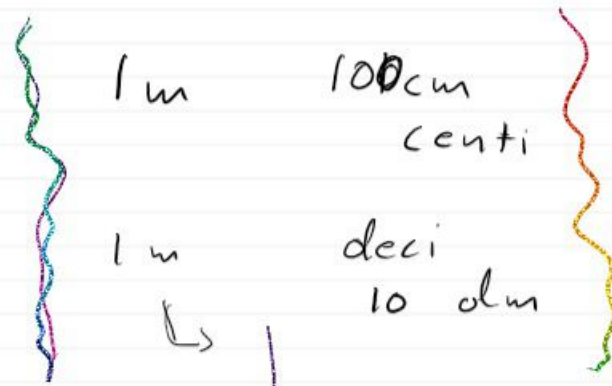 1 m 100cm
centi
1 m deci
10 dm